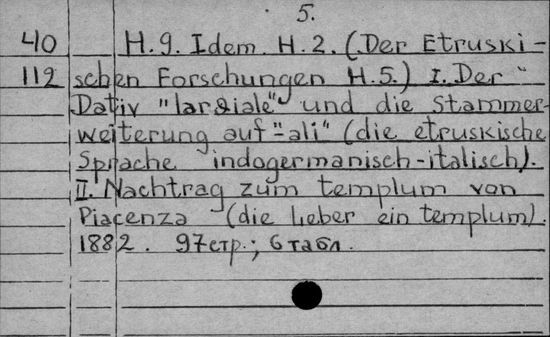 5.
40 H.9. Idem H.2. (Der Etruski-
112 schen Forschungen H.5.) I. Der
Dativ "larϑiale" und die Stammer-
weiterung auf "-ali" (die etruskische
Sprache indogermanisch-italisch).
II. Nachtrag zum templum von
Piacenza (die Leber ein templum).
1882. 97 стр.; 6 табл.